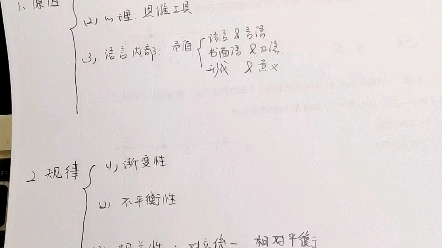 1. 原因
(2) 心理: 思维工具
(3) 语言内部: 矛盾
语言 & 言语
书面语 & 口语
形式 & 意义
2. 规律
(1) 渐变性
(2) 不平衡性
相关性: 对立统一 相对平衡